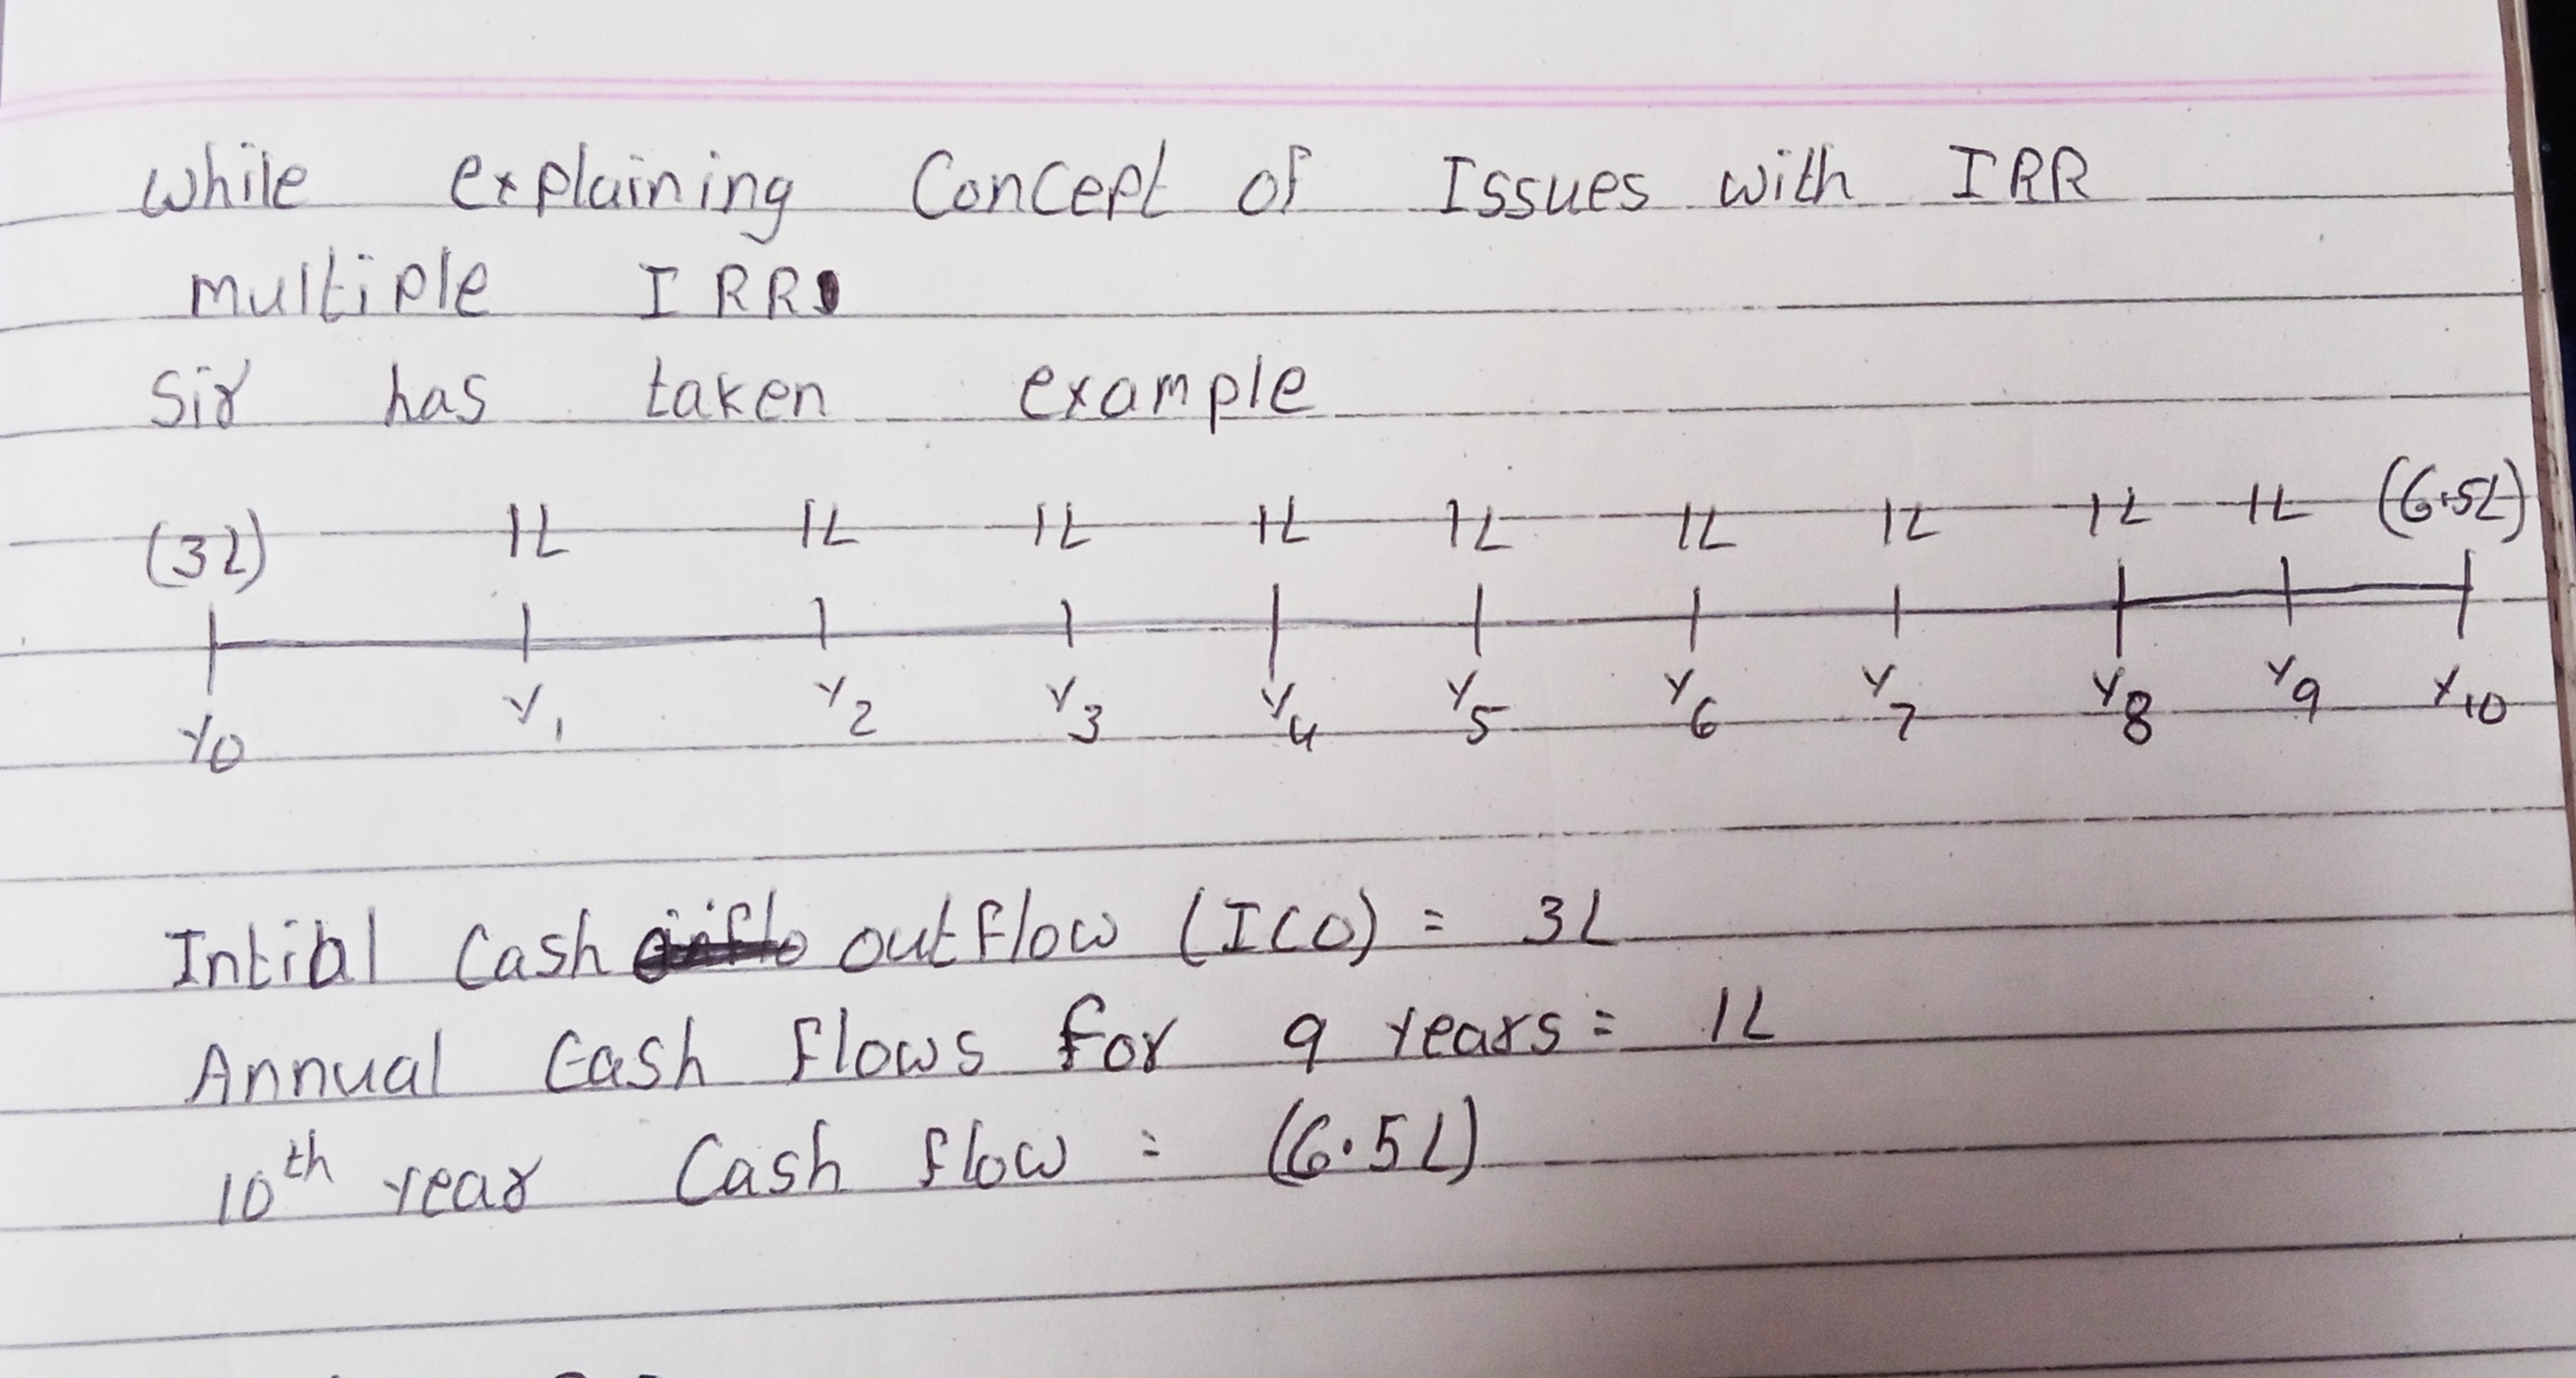 While explaining Concept of Issues with IRR
multiple IRRs
Sir has taken example
(3L) 1L 1L 1L 1L 1L 1L 1L 1L 1L (6.5L)
Y0 Y1 Y2 Y3 Y4 Y5 Y6 Y7 Y8 Y9 Y10
Intial Cash outflow (ICO) = 3L
Annual Cash flows for 9 years = 1L
10th year Cash flow = (6.5L)